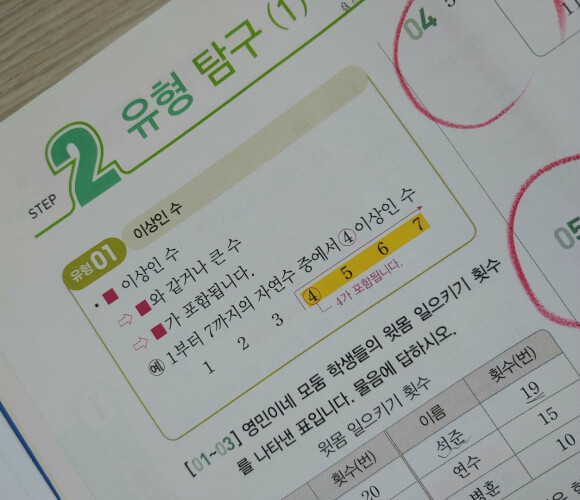 STEP 2 유형 탐구 (1)
유형 01 이상인 수
• ■ 이상인 수
⇨ ■와 같거나 큰 수
⇨ ■가 포함됩니다.
예 1부터 7까지의 자연수 중에서 ④ 이상인 수
1 2 3 ④ 5 6 7
4가 포함됩니다.
[01~03] 영민이네 모둠 학생들의 윗몸 일으키기 횟수
를 나타낸 표입니다. 물음에 답하시오.
윗몸 일으키기 횟수
횟수(번) 이름 횟수(번)
20 석준 19
연수 15
백훈 10
04
05